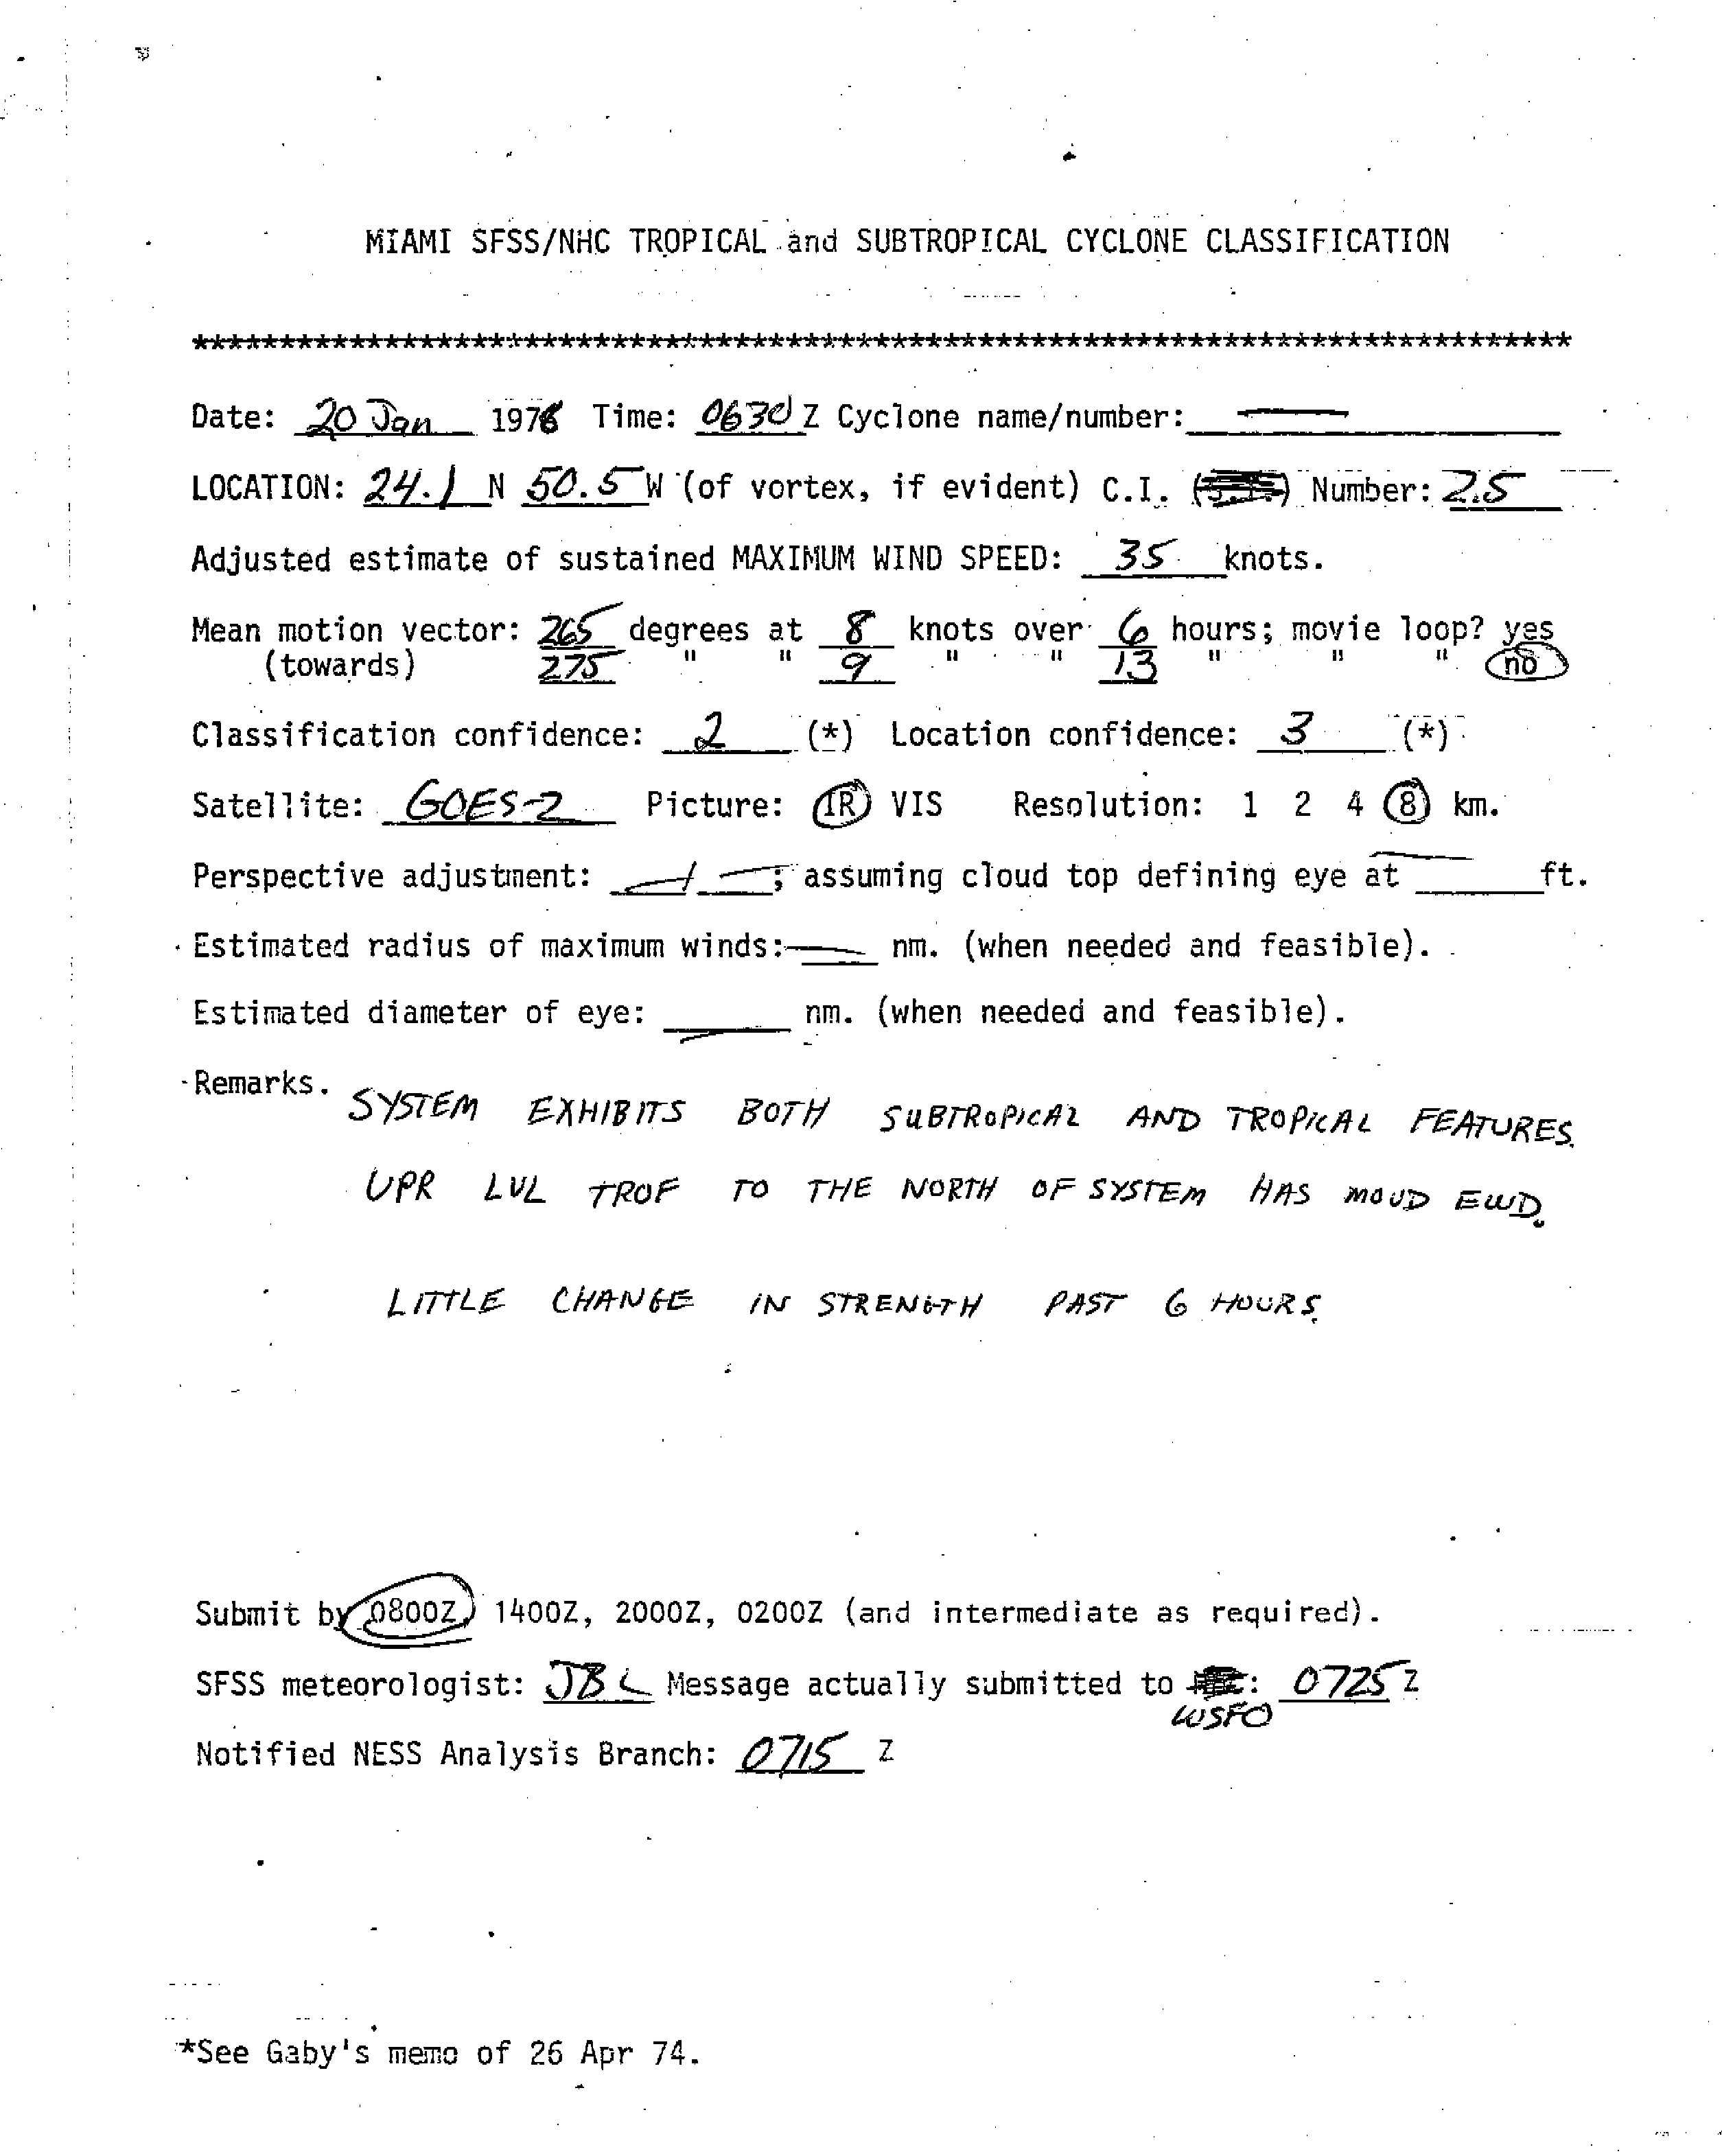 MIAMI SFSS/NHC TROPICAL and SUBTROPICAL CYCLONE CLASSIFICATION
******************************************************************************
Date: 20 Jan 1978 Time: 0630 Z Cyclone name/number: —
LOCATION: 24.1 N 50.5 W (of vortex, if evident) C.I. Number: 2.5
Adjusted estimate of sustained MAXIMUM WIND SPEED: 35 knots.
Mean motion vector: 265 degrees at 8 knots over 6 hours; movie loop? yes
(towards) 275 " " 9 " " 13 " " " no
Classification confidence: 2 (*) Location confidence: 3 (*)
Satellite: GOES-2 Picture: IR VIS Resolution: 1 2 4 8 km.
Perspective adjustment: — / —; assuming cloud top defining eye at — ft.
Estimated radius of maximum winds: — nm. (when needed and feasible).
Estimated diameter of eye: — nm. (when needed and feasible).
Remarks.
SYSTEM EXHIBITS BOTH SUBTROPICAL AND TROPICAL FEATURES.
UPR LVL TROF TO THE NORTH OF SYSTEM HAS MOVD EWD.
LITTLE CHANGE IN STRENGTH PAST 6 HOURS.
Submit by 0800Z, 1400Z, 2000Z, 0200Z (and intermediate as required).
SFSS meteorologist: JBL Message actually submitted to : 0725 Z
WSFO
Notified NESS Analysis Branch: 0715 Z
*See Gaby's memo of 26 Apr 74.